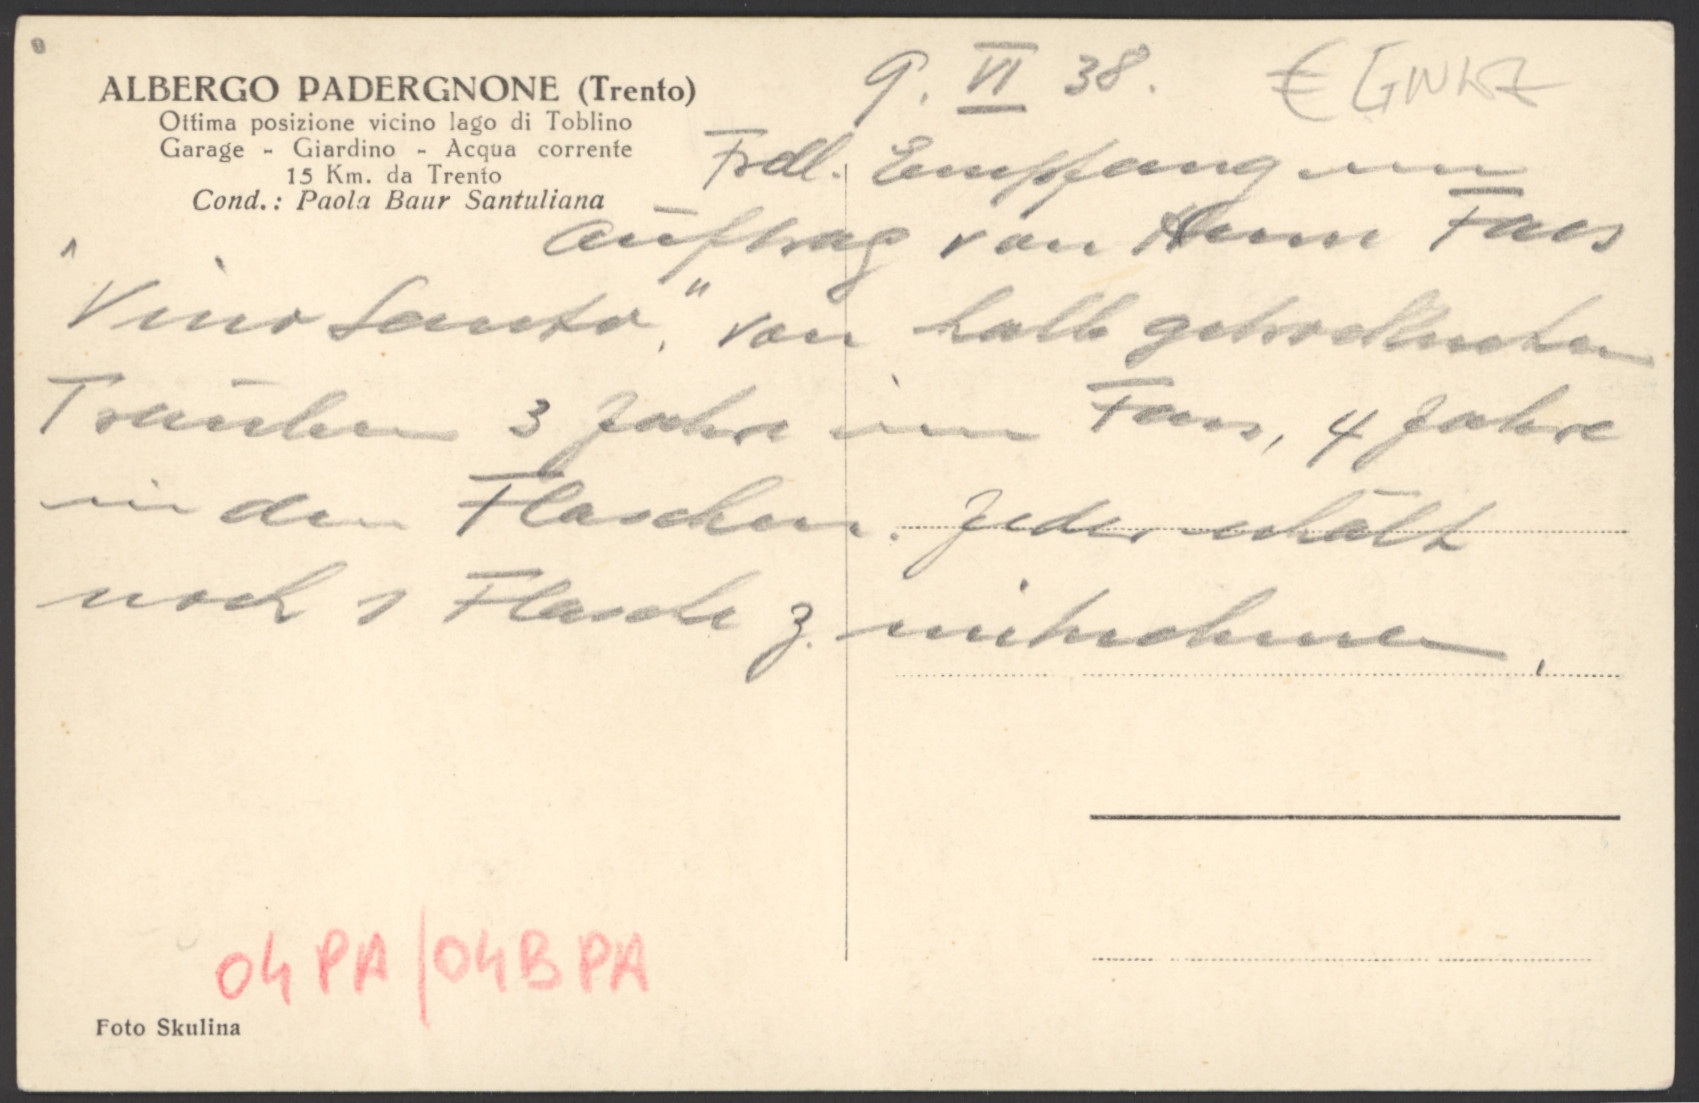 ALBERGO PADERGNONE (Trento)
Ottima posizione vicino lago di Toblino
Garage - Giardino - Acqua corrente
15 Km. da Trento
Cond.: Paola Baur Santuliana
9. VI 38.
Frdl. Empfang im
Auftrag von Herrn Faes
"Vino Santo," von halb getrockneten
Trauben 3 Jahre im Fass, 4 Jahre
in den Flaschen. Jeder erhält
noch 1 Flasche z. mitnehmen.
04 PA/04B PA
Foto Skulina